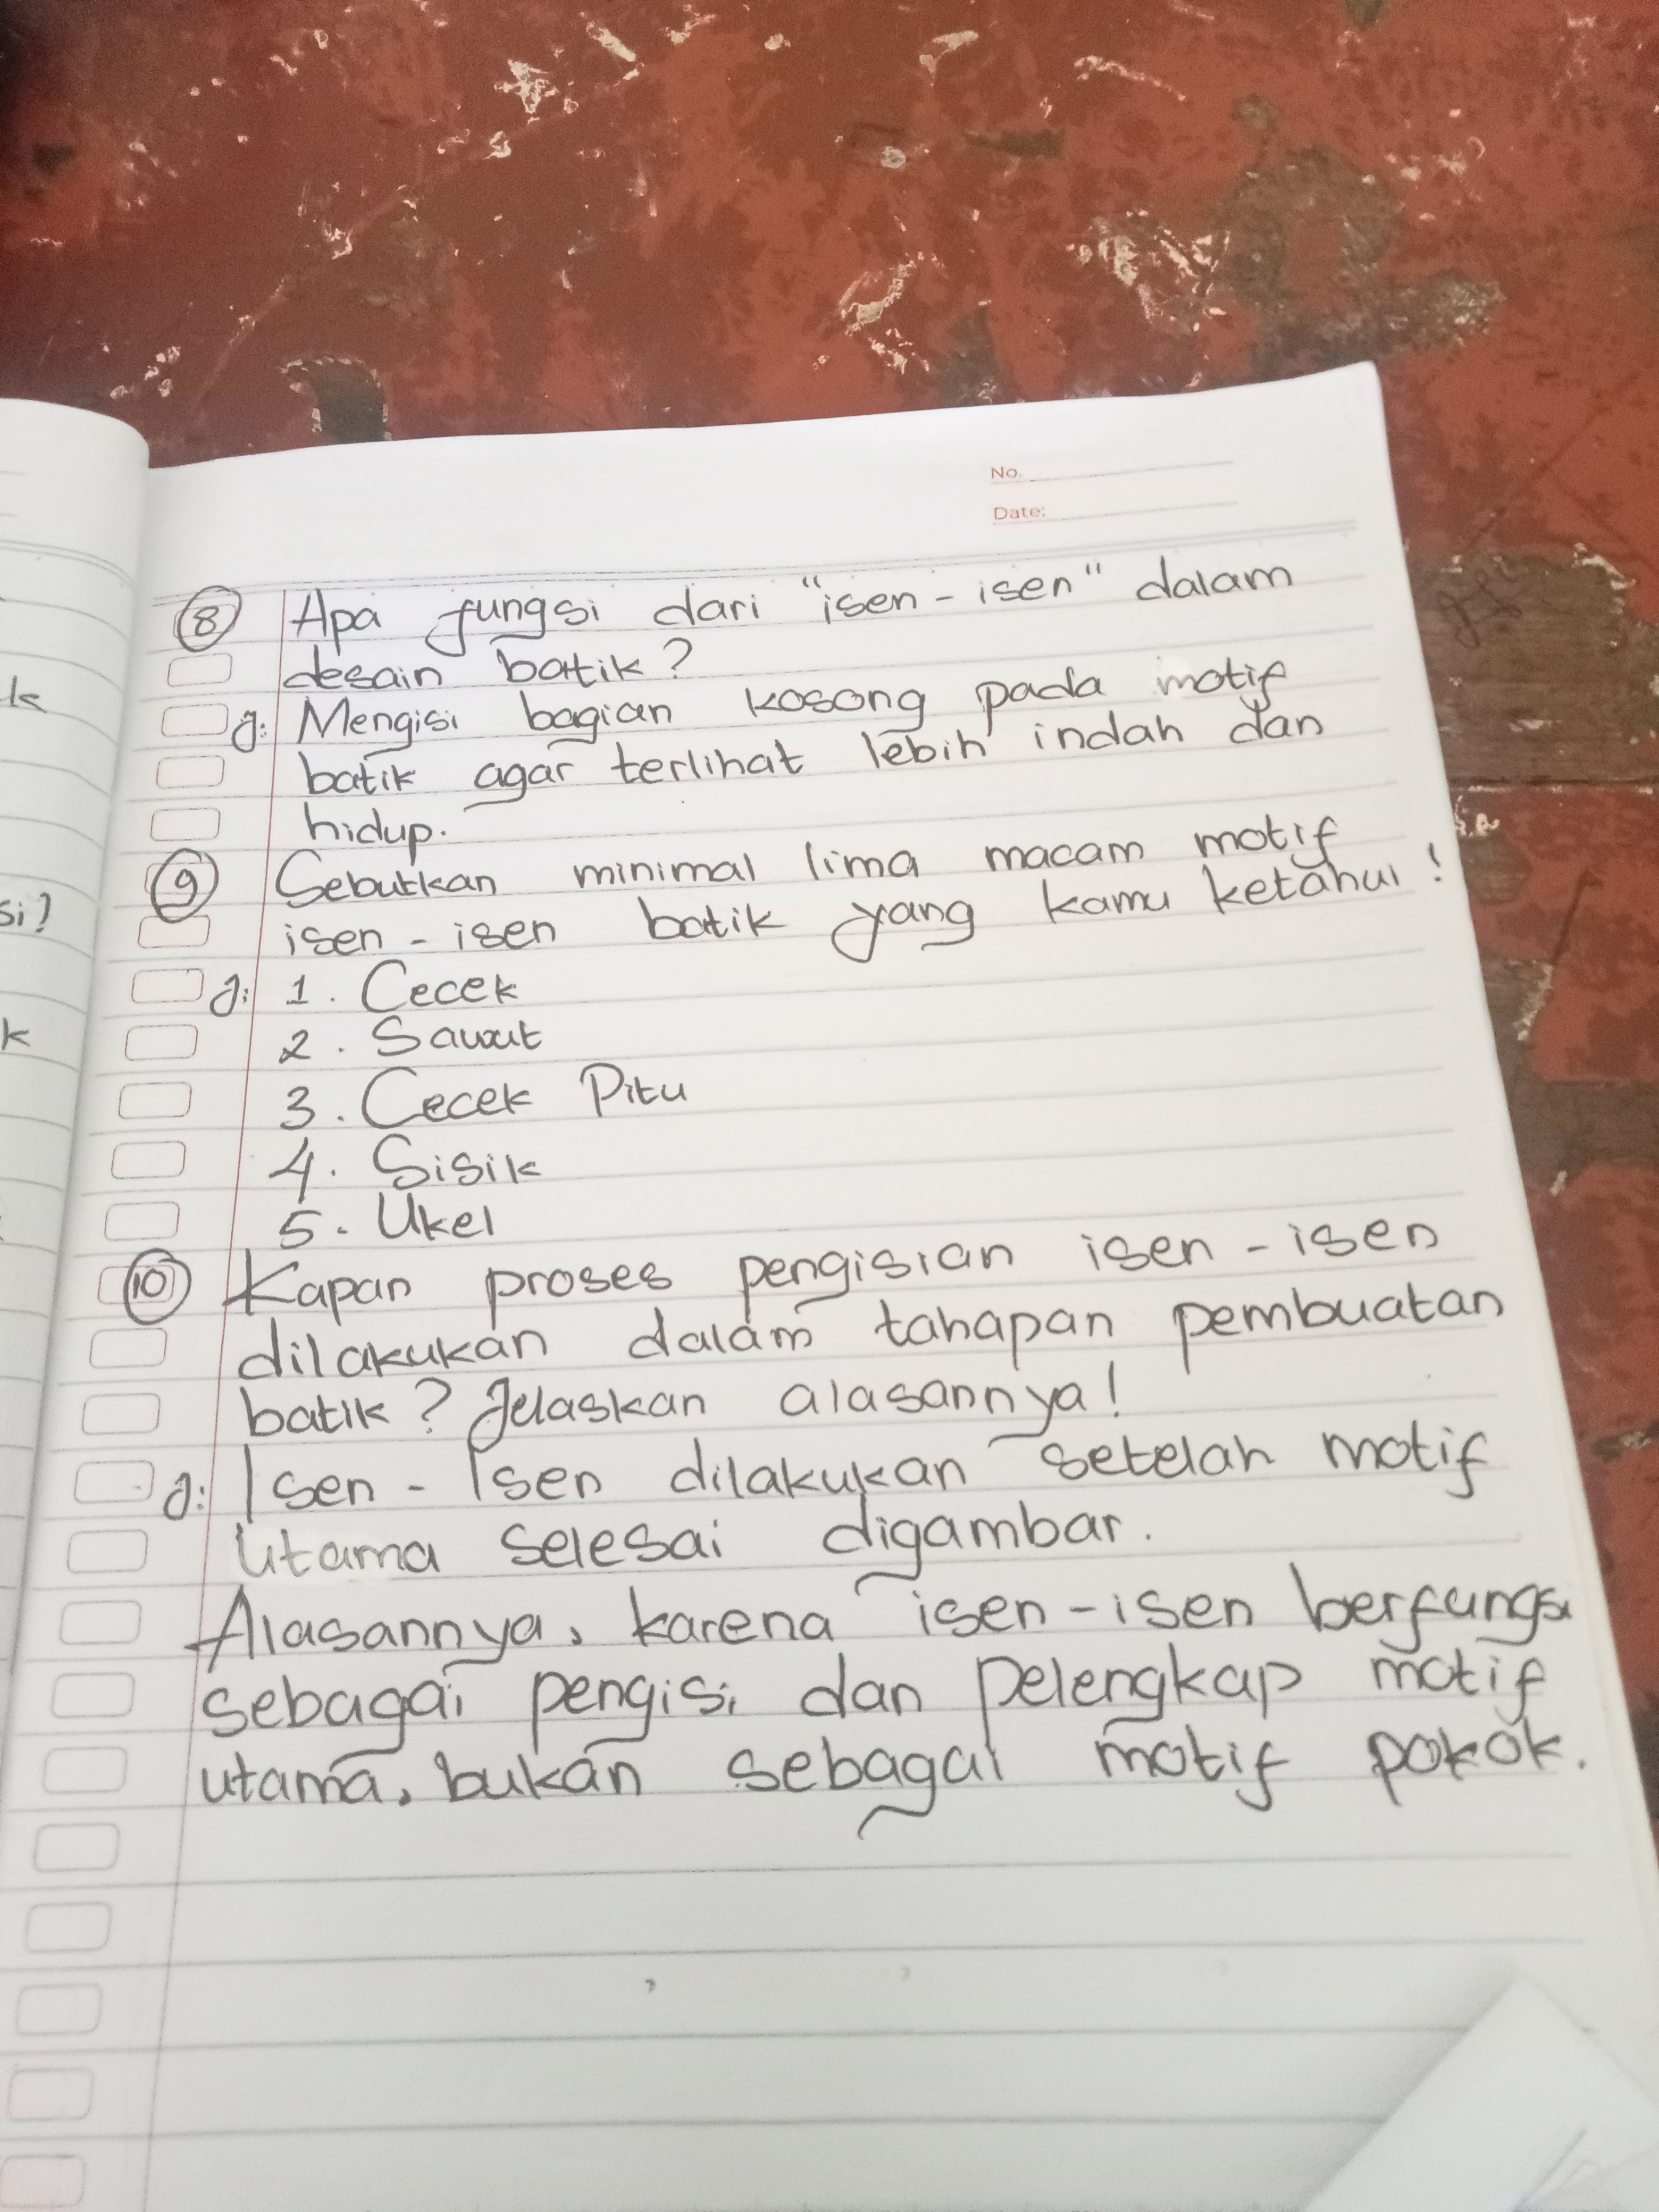 No.
Date:
k
si?
k
8 Apa fungsi dari "isen - isen" dalam
desain batik?
J: Mengisi bagian kosong pada motif
batik agar terlihat lebih indah dan
hidup.
9 Sebutkan minimal lima macam motif
isen - isen batik yang kamu ketahui!
J: 1. Cecek
2. Sawut
3. Cecek Pitu
4. Sisik
5. Ukel
10 Kapan proses pengisian isen - isen
dilakukan dalam tahapan pembuatan
batik? Jelaskan alasannya!
J: Isen - Isen dilakukan setelah motif
utama selesai digambar.
Alasannya, karena isen - isen berfungsi
sebagai pengisi dan pelengkap motif
utama, bukan sebagai motif pokok.